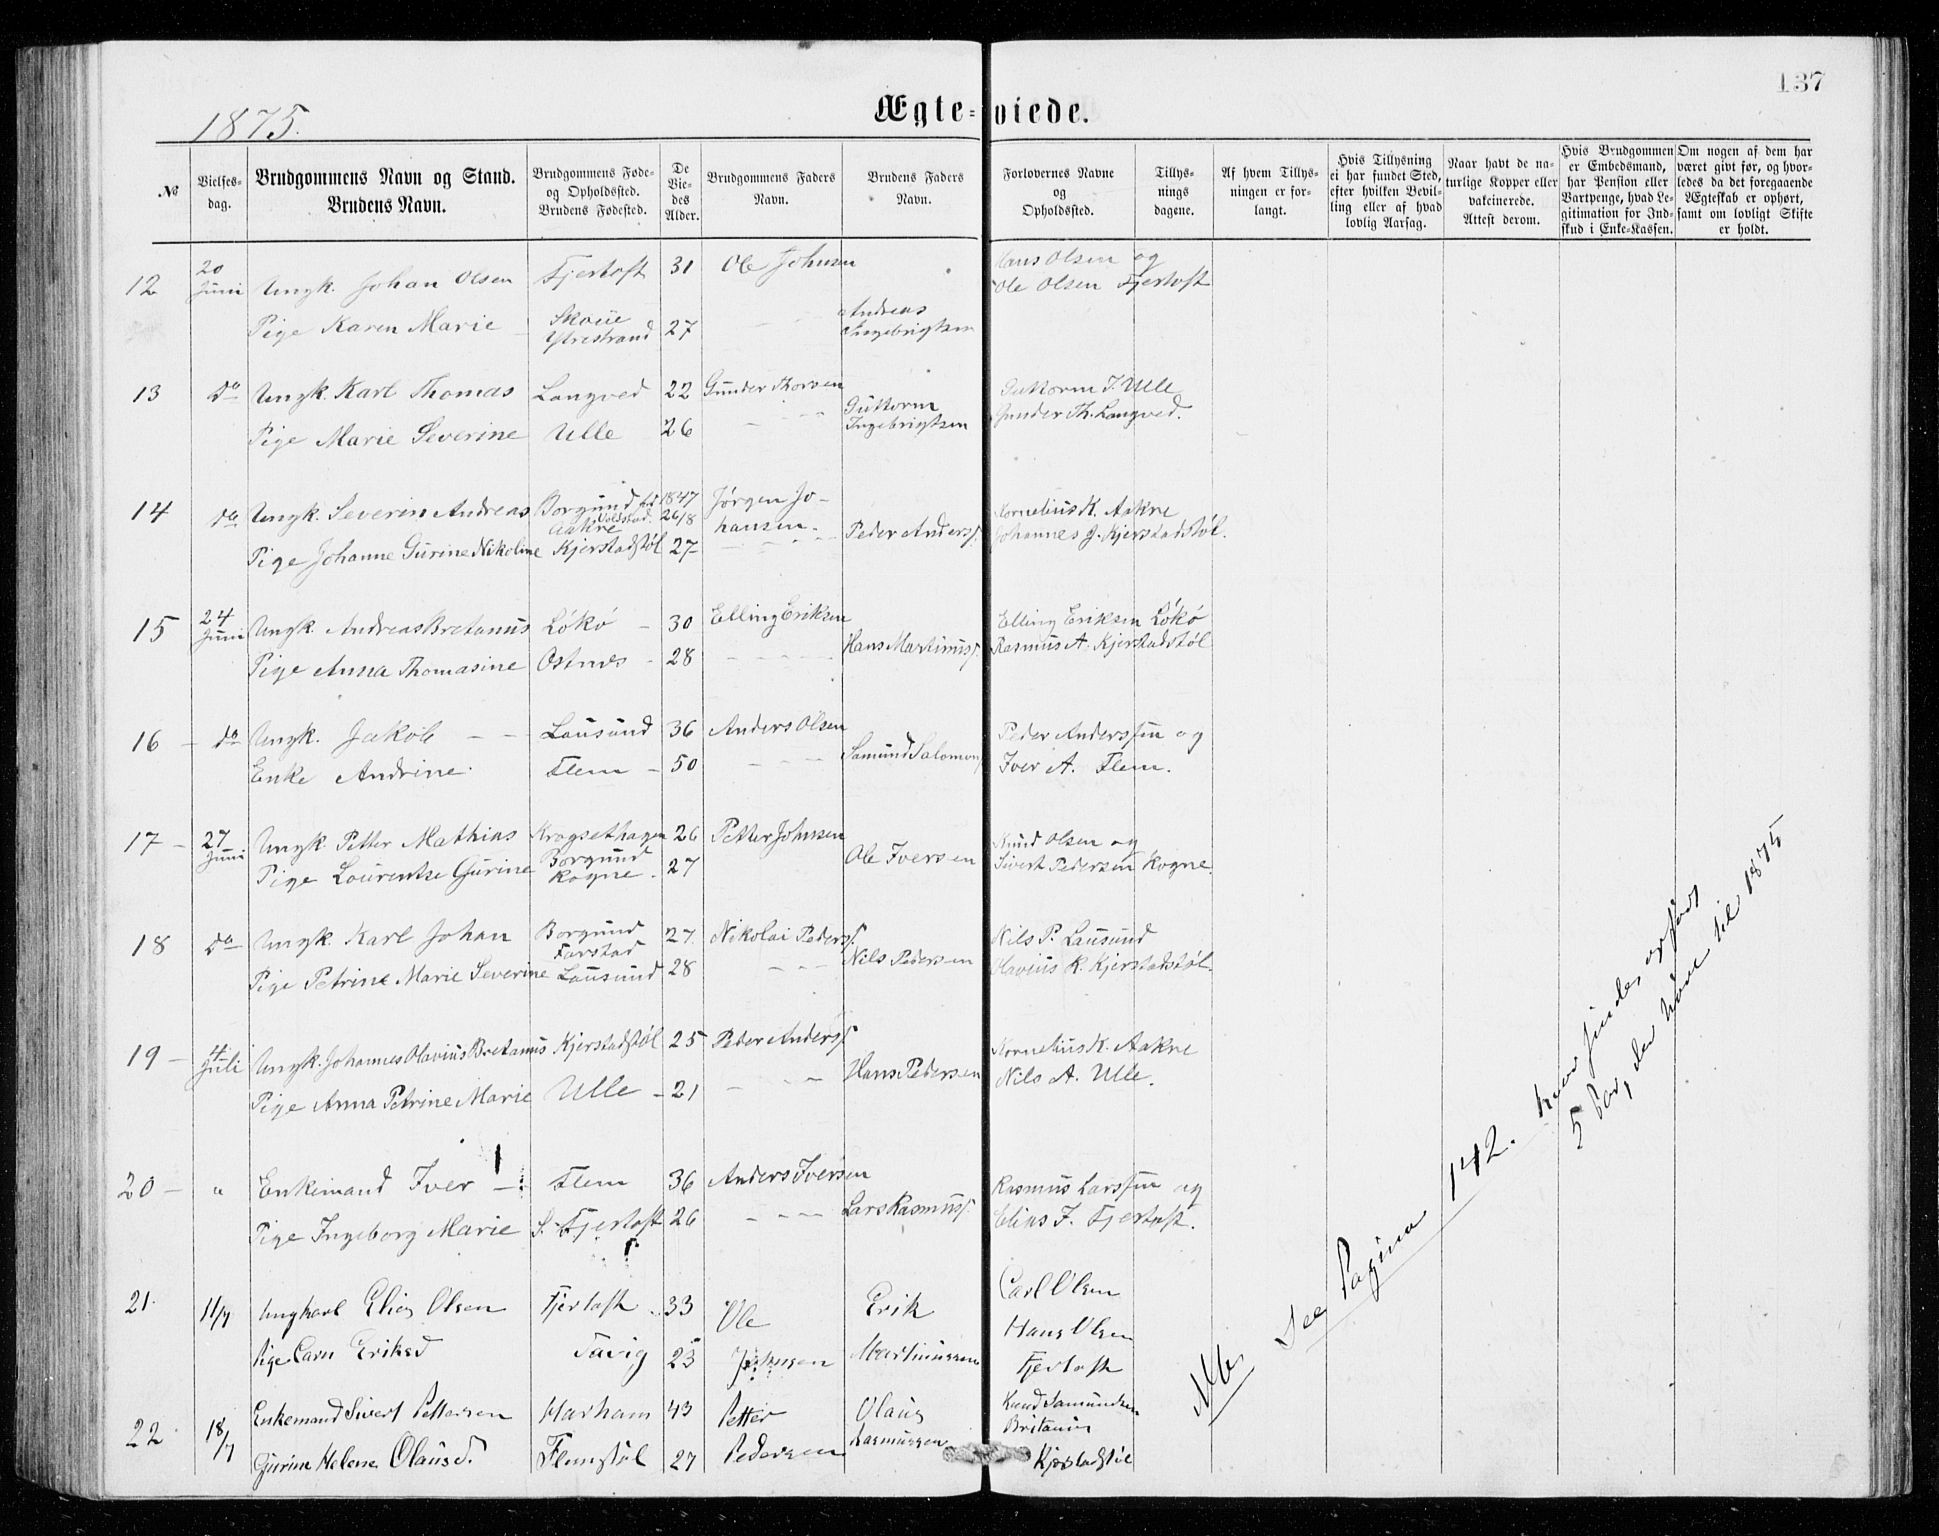 137
1875.
Ægte-viede.
№
Vielses-dag.
Brudgommens Navn og Stand.
Brudens Navn.
Brudgommens Føde- og Opholdssted.
Brudens Fødested.
De Vie-des Alder.
Brudgommens Faders Navn.
Brudens Faders Navn.
Forlovernes Navne og Opholdssted.
Tillys-nings dagene.
Af hvem Tillys-ningen er for-langt.
Hvis Tillysning ei har fundet Sted, efter hvilken Bevil-ling eller af hvad lovlig Aarsag.
Naar havt de na-turlige Kopper eller vakcinerede. Attest derom.
Hvis Brudgommen er Embedsmand, har Pension eller Vartpenge, hvad Le-gitimation for Ind-skud i Enke-Kassen.
Om nogen af dem har været givt før, og hvor-ledes da det foregaaende Ægteskab er ophørt, samt om lovligt Skifte er holdt.
12 20 Juni Ungk. Johan Olsen Fjertoft 31 Ole Johnsen Hans Olsen og
Ole Olsen Fjertoft
Pige Karen Marie Ytrestrand 27 Andreas Ingebrigtsen
13 do Ungk. Karl Thomas Longved 22 Gunder Thorsen Guttorm I. Ulle
Gunder Th. Longved.
Pige Marie Severine Ulle 26 Guttorm Ingebrigtsen
14 do Ungk. Severin Andreas Borgund Aakre 1847 26/8 Jørgen Johansen Kornelius K. Aakre
Pige Johanne Gurine Nikoline Kjerstadstøl 27 Peder Anders. Johannes J. Kjerstadstøl.
15 24 Juni Ungk. Andreas Bretanus Løkø 30 Elling Eriksen Elling Eriksen Løkø
Pige Anna Thomasine Ostnes 28 Hans Martinus. Rasmus A. Kjerstadstøl
16 do Ungk. Jakob Lousund 36 Anders Olsen Peder Anderssen og
Enke Andrine Flem 50 Samund Salomons. Iver A. Flem.
17 27 Juni Ungk. Petter Mathias Krogsethagen 26 Petter Johnsen Knud Olsen og
Pige Lourentse Gurine Borgund Rogne 27 Ole Iversen Sivert Pedersen Rogne.
18 do Ungk. Karl Johan Borgund Farstad 27 Nikolai Peders. Nils P. Lausund
Pige Petrine Marie Severine Lousund 28 Nils Pedersen Olavius R. Kjerstadstøl.
19 4 Juli Ungk. Johannes Olavius Bretanus Kjerstadstøl 25 Peder Anders. Kornelius K. Aakre
Pige Anna Petrine Marie Ulle 21 Hans Pedersen Nils A. Ulle.
20 " Enkemand Iver Flem 36 Anders Iversen Rasmus Larssen og
Pige Ingeborg Marie S. Fjertoft 26 Lars Rasmus. Elias J. Fjertoft.
21. 11/7 Ungkarl Elias Olsen Fjertoft 33 Ole Johnsen Erik Martinussen Carl Olsen
Pige Carn Eriksd Tavig 23 Hans Olsen
Fjertoft
22. 18/7 Enkemand Sivert Pettersen Harham 43 Petter Pedersen Olaus Rasmussen Knud Samundsen
Gurine Helene Olausd. Flemstøl 27 Britanus
Kjerstadstøl
NB. See Pagina 142. hvor findes
5 Par, der hører til 1875